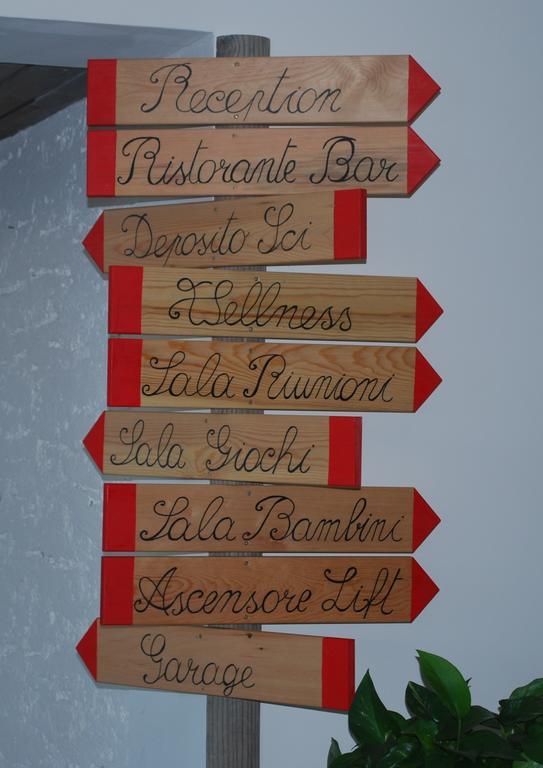 Reception
Ristorante Bar
Deposito Sci
Wellness
Sala Riunioni
Sala Giochi
Sala Bambini
Ascensore Lift
Garage